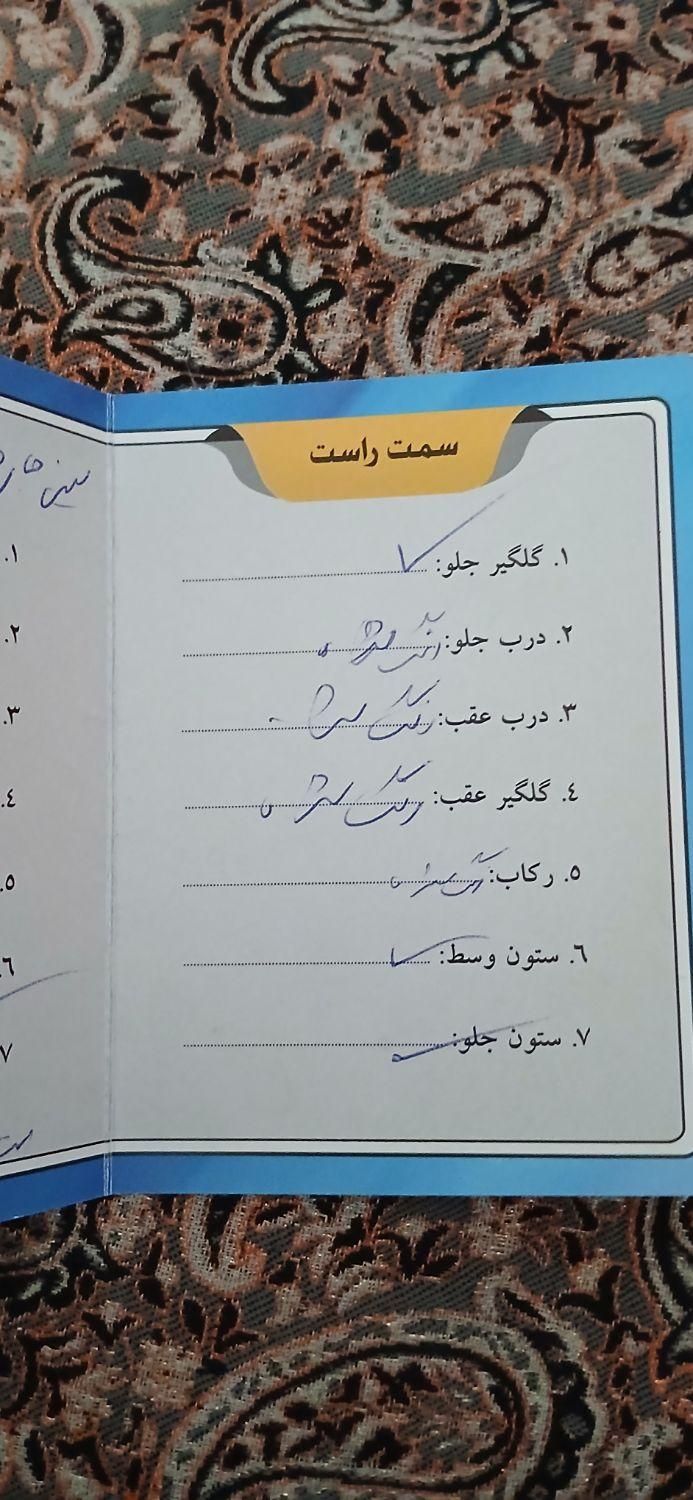 سمت راست
١. گلگیر جلو: ✓
٢. درب جلو: رنگ شده
٣. درب عقب: رنگ شده
٤. گلگیر عقب: رنگ شده
٥. رکاب: رنگ شده
٦. ستون وسط: ✓
٧. ستون جلو: ✓
١.
٢.
٣.
٤.
٥.
٦.
٧